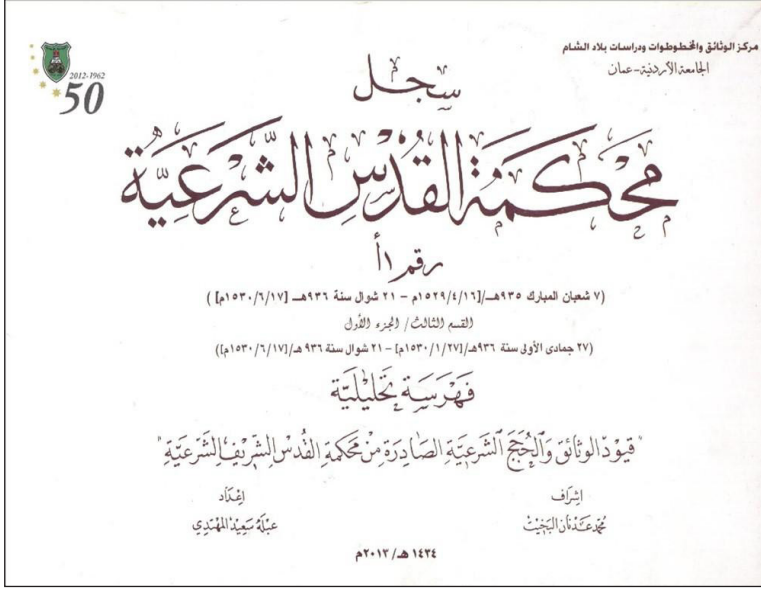 مركز الوثائق والمخطوطات ودراسات بلاد الشام
الجامعة الأردنية-عمان
2012-1962
50
سجل
محكمة القدس الشرعية
رقم ١أ
(٧ شعبان المبارك ٩٣٥هـ/[١٥٢٩/٤/١٦م - ٢١ شوال سنة ٩٣٦هـ [١٥٣٠/٦/١٧م] )
القسم الثالث/ الجزء الأول
(٢٧ جمادى الأولى سنة ٩٣٦هـ/[١٥٣٠/١/٢٧م] - ٢١ شوال سنة ٩٣٦ هـ/[١٥٣٠/٦/١٧م])
فَهْرَسَة تَحليليَّة
"قيود الوثائق وَالحُجَج الشَرعيَّة الصَادِرَة مِن محكمة القُدس الشريف الشرعيَّة"
إشراف
إعدَاد
محمد عَدنان البَخيت
عبلة سَعيد المهتدي
١٤٣٤ هـ/ ٢٠١٣م